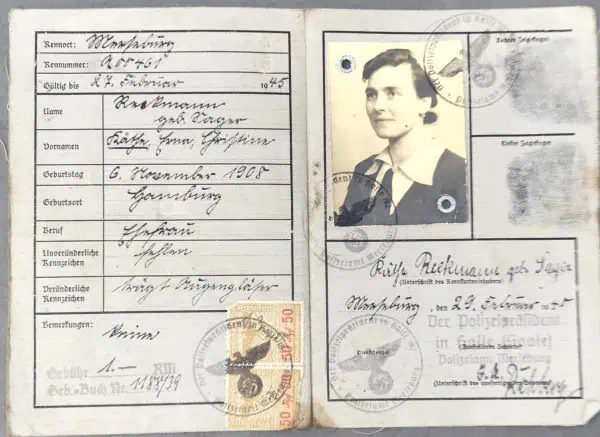 Kennort: Merseburg
Kennummer: A00461
Gültig bis 27. Februar 1945
Name Reckmann
geb. Sager
Vornamen Käthe, Erna, Christine
Geburtstag 6. November 1908
Geburtsort Hamburg
Beruf Ehefrau
Unveränderliche Kennzeichen fehlen
Veränderliche Kennzeichen trägt Augengläser
Bemerkungen: keine
Gebühr 1.— RM
Geb.-Buch Nr. 1188/39
50 Rpf 50
50 Rpf 50
Rechter Zeigefinger
Linker Zeigefinger
Käthe Reckmann geb. Sager
(Unterschrift des Kennkarteninhabers)
Merseburg, den 29. Februar
Der Polizeipräsident
in Halle (Saale)
Polizeiamt Merseburg
(Ausstellende Behörde)
(Unterschrift des ausfertigenden Beamten)
Der Polizeipräsident in Halle
Polizeiamt Merseburg